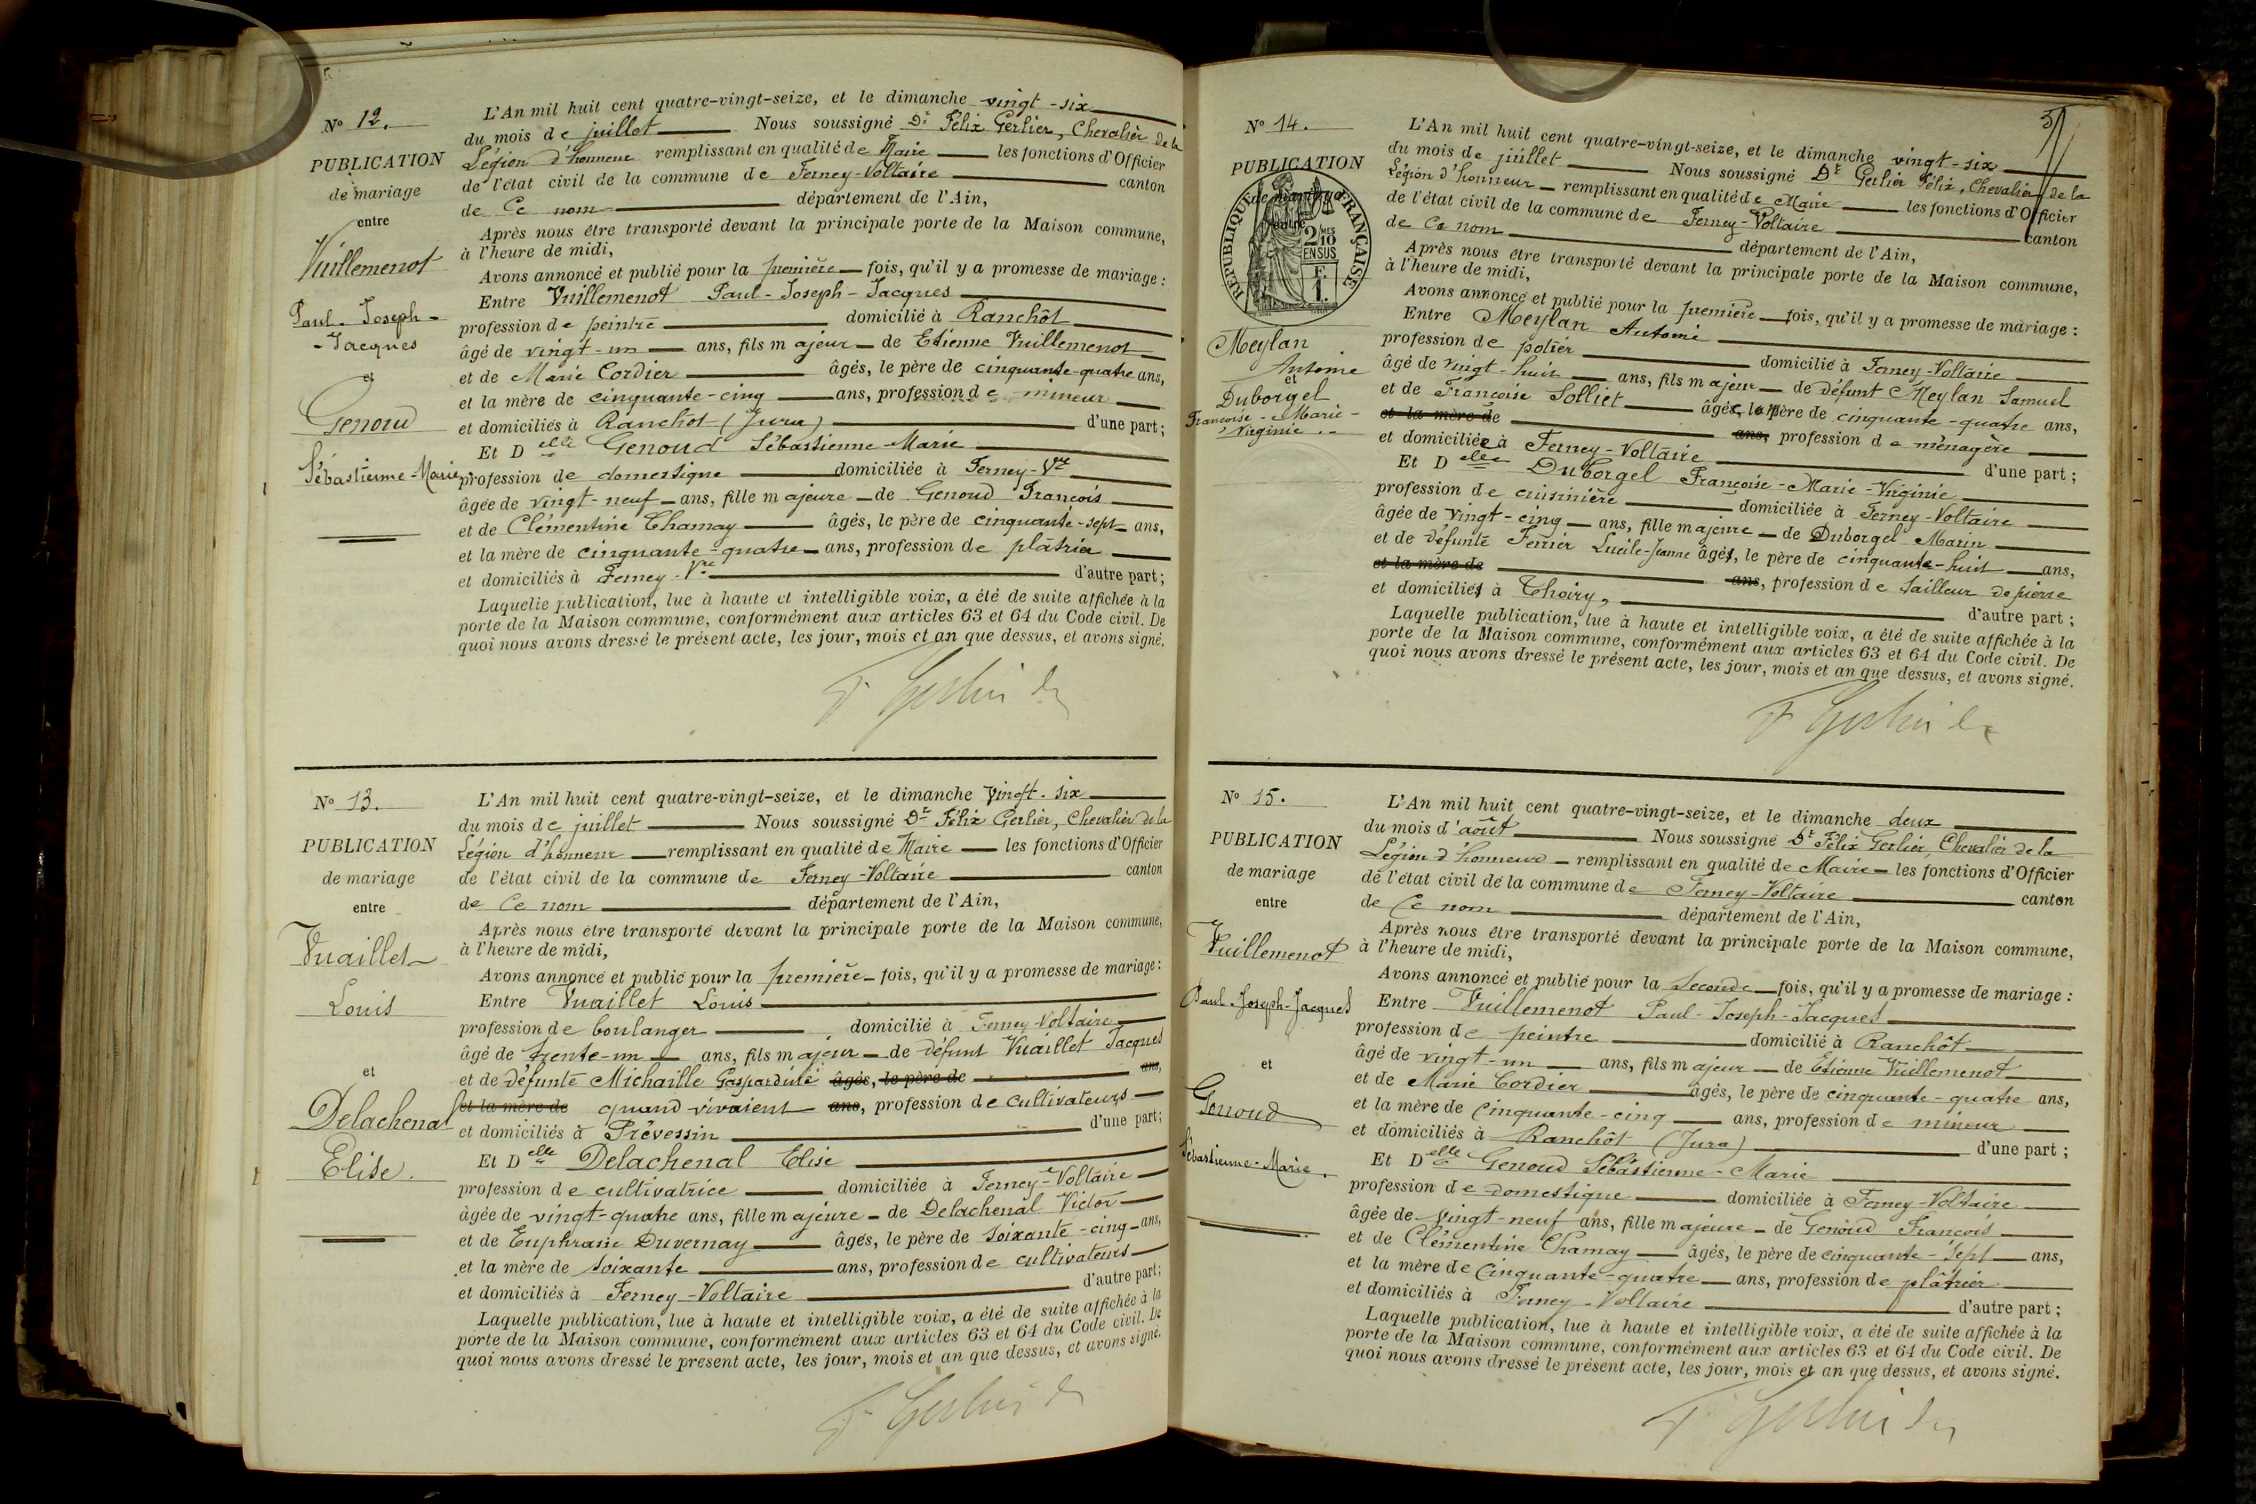 N° 12.
PUBLICATION
de mariage
entre
Vuillemenot
Paul-Joseph-
-Jacques
et
Genoud
Sébastienne-Marie
L'An mil huit cent quatre-vingt-seize, et le dimanche vingt-six
du mois de juillet Nous soussigné Dr Félix Gerlier, Chevalier de la
Légion d'honneur remplissant en qualité de Maire les fonctions d'Officier
de l'état civil de la commune de Ferney-Voltaire canton
de Ce nom département de l'Ain,
Après nous être transporté devant la principale porte de la Maison commune,
à l'heure de midi,
Avons annoncé et publié pour la première fois, qu'il y a promesse de mariage :
Entre Vuillemenot Paul-Joseph-Jacques
profession de peintre domicilié à Ranchôt
âgé de vingt-un ans, fils majeur de Etienne Vuillemenot
et de Marie Cordier âgés, le père de cinquante-quatre ans,
et la mère de cinquante-cinq ans, profession de mineur
et domiciliés à Ranchôt (Jura) d'une part ;
Et Delle Genoud Sébastienne Marie
profession de domestique domiciliée à Ferney-Vre
âgée de vingt-neuf ans, fille majeure de Genoud François
et de Clémentine Chamay âgés, le père de cinquante-sept ans,
et la mère de cinquante-quatre ans, profession de plâtrier
et domiciliés à Ferney-Vre d'autre part ;
Laquelle publication, lue à haute et intelligible voix, a été de suite affichée à la
porte de la Maison commune, conformément aux articles 63 et 64 du Code civil. De
quoi nous avons dressé le présent acte, les jour, mois et an que dessus, et avons signé.
F. Gerlier Dr
N° 13.
PUBLICATION
de mariage
entre
Vuaillet
Louis
et
Delachenal
Elise.
L'An mil huit cent quatre-vingt-seize, et le dimanche vingt-six
du mois de juillet Nous soussigné Dr Félix Gerlier, Chevalier de la
Légion d'honneur remplissant en qualité de Maire les fonctions d'Officier
de l'état civil de la commune de Ferney-Voltaire canton
de Ce nom département de l'Ain,
Après nous être transporté devant la principale porte de la Maison commune,
à l'heure de midi,
Avons annoncé et publié pour la première fois, qu'il y a promesse de mariage :
Entre Vuaillet Louis
profession de boulanger domicilié à Ferney-Voltaire
âgé de trente-un ans, fils majeur de défunt Vuaillet Jacques
et de défunte Michaille Gasparde âgés, le père de ans,
et la mère de quand vivaient ans, profession de cultivateurs
et domiciliés à Prévessin d'une part ;
Et Delle Delachenal Elise
profession de cultivatrice domiciliée à Ferney-Voltaire
âgée de vingt-quatre ans, fille majeure de Delachenal Victor
et de Euphrasie Duvernay âgés, le père de soixante-cinq ans,
et la mère de soixante ans, profession de cultivateurs
et domiciliés à Ferney-Voltaire d'autre part ;
Laquelle publication, lue à haute et intelligible voix, a été de suite affichée à la
porte de la Maison commune, conformément aux articles 63 et 64 du Code civil. De
quoi nous avons dressé le présent acte, les jour, mois et an que dessus, et avons signé.
F. Gerlier Dr
N° 14.
PUBLICATION
de mariage
entre
RÉPUBLIQUE FRANÇAISE
2/10
EN SUS
F.
1.
Meylan
Antoine
et
Duborgel
Françoise-Marie-
Virginie
L'An mil huit cent quatre-vingt-seize, et le dimanche vingt-six
du mois de juillet Nous soussigné Dr Gerlier Félix, Chevalier de la
Légion d'honneur remplissant en qualité de Maire les fonctions d'Officier
de l'état civil de la commune de Ferney-Voltaire canton
de Ce nom département de l'Ain,
Après nous être transporté devant la principale porte de la Maison commune,
à l'heure de midi,
Avons annoncé et publié pour la première fois, qu'il y a promesse de mariage :
Entre Meylan Antoine
profession de potier domicilié à Ferney-Voltaire
âgé de vingt-huit ans, fils majeur de défunt Meylan Samuel
et de Françoise Solliet âgée, la mère de cinquante-quatre ans,
et la mère de ans, profession de ménagère
et domiciliée à Ferney-Voltaire d'une part ;
Et Delle Duborgel Françoise-Marie-Virginie
profession de cuisinière domiciliée à Ferney-Voltaire
âgée de vingt-cinq ans, fille majeure de Duborgel Marin
et de défunte Ferrier Lucile-Jeanne âgés, le père de cinquante-huit ans,
et la mère de ans, profession de tailleur de pierre
et domiciliés à Thoiry, d'autre part ;
Laquelle publication, lue à haute et intelligible voix, a été de suite affichée à la
porte de la Maison commune, conformément aux articles 63 et 64 du Code civil. De
quoi nous avons dressé le présent acte, les jour, mois et an que dessus, et avons signé.
F. Gerlier Dr
N° 15.
PUBLICATION
de mariage
entre
Vuillemenot
Paul-Joseph-Jacques
et
Genoud
Sébastienne-Marie.
L'An mil huit cent quatre-vingt-seize, et le dimanche deux
du mois d'août Nous soussigné Dr Félix Gerlier Chevalier de la
Légion d'honneur remplissant en qualité de Maire les fonctions d'Officier
de l'état civil de la commune de Ferney-Voltaire canton
de Ce nom département de l'Ain,
Après nous être transporté devant la principale porte de la Maison commune,
à l'heure de midi,
Avons annoncé et publié pour la Seconde fois, qu'il y a promesse de mariage :
Entre Vuillemenot Paul-Joseph-Jacques
profession de peintre domicilié à Ranchôt
âgé de vingt-un ans, fils majeur de Etienne Vuillemenot
et de Marie Cordier âgés, le père de cinquante-quatre ans,
et la mère de cinquante-cinq ans, profession de mineur
et domiciliés à Ranchôt (Jura) d'une part ;
Et Delle Genoud Sébastienne-Marie
profession de domestique domiciliée à Ferney-Voltaire
âgée de vingt-neuf ans, fille majeure de Genoud François
et de Clémentine Chamay âgés, le père de cinquante-sept ans,
et la mère de cinquante-quatre ans, profession de plâtrier
et domiciliés à Ferney-Voltaire d'autre part ;
Laquelle publication, lue à haute et intelligible voix, a été de suite affichée à la
porte de la Maison commune, conformément aux articles 63 et 64 du Code civil. De
quoi nous avons dressé le présent acte, les jour, mois et an que dessus, et avons signé.
F. Gerlier Dr